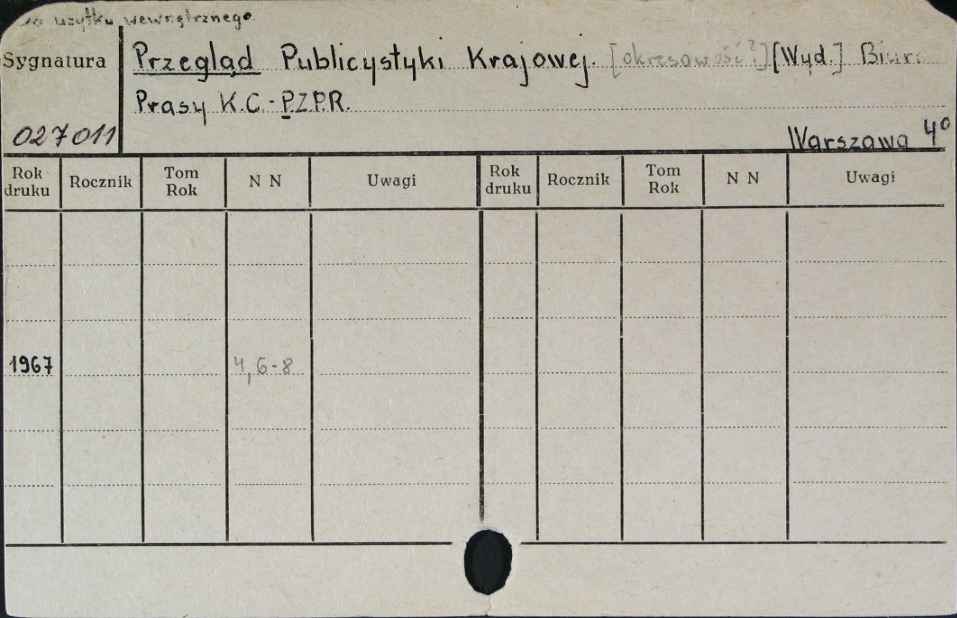 użytku wewnętrznego.
Sygnatura
Przegląd Publicystyki Krajowej. [okresowość?] [Wyd.] Biuro
Prasy K.C.-P.Z.P.R.
027011
Warszawa 4°
Rok druku Rocznik Tom Rok N N Uwagi Rok druku Rocznik Tom Rok N N Uwagi
1967 4, 6-8